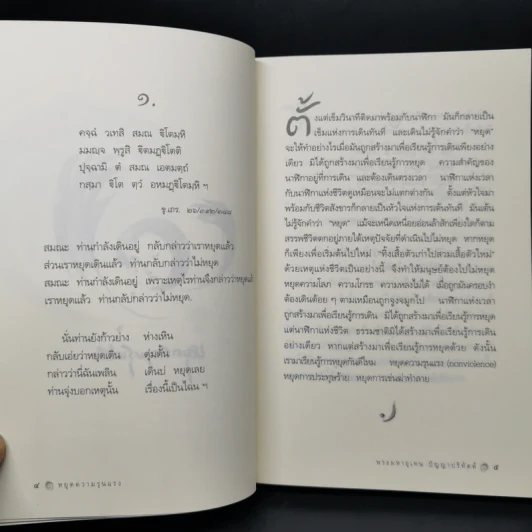 ๑.
คจฺฉํ วเทสิ สมณ ฐิโตมฺหิ
มมญฺจ พฺรูสิ ฐิตมฏฺฐิโตติ
ปุจฺฉามิ ตํ สมณ เอตมตฺถํ
กสฺมา ฐิโต ตฺวํ อหมฏฺฐิโตมฺหิ ฯ
ขุ.เถร.
สมณะ ท่านกำลังเดินอยู่ กลับกล่าวว่าเราหยุดแล้ว
ส่วนเราหยุดเดินแล้ว ท่านกล่าวว่าไม่หยุด
สมณะ ท่านกำลังเดินอยู่ เพราะเหตุไรท่านจึงกล่าวว่าหยุดแล้ว
เราหยุดแล้ว ท่านกลับกล่าวว่าไม่หยุด.
นั่นท่านยังก้าวย่าง ห่างเหิน
กลับเอ่ยว่าหยุดเดิน ดุ่มดั้น
กล่าวว่านี่ฉันเพลิน เดินบ่ หยุดเลย
ท่านจุ่งบอกเหตุนั้น เรื่องนี้เป็นไฉน ฯ
๔ หยุดความรุนแรง
ตั้งแต่เข็มวินาทีติดมาพร้อมกับนาฬิกา มันก็กลายเป็น
เข็มแห่งการเดินทันที และเดินไม่รู้จักคำว่า "หยุด"
จะให้ทำอย่างไรเมื่อมันถูกสร้างมาเพื่อเรียนรู้การเดินเพียงอย่าง
เดียว มิได้ถูกสร้างมาเพื่อเรียนรู้การหยุด ความสำคัญของ
นาฬิกาอยู่ที่การเดิน และต้องเดินตรงเวลา นาฬิกาแห่งเวลา
กับนาฬิกาแห่งชีวิตดูเหมือนจะไม่แตกต่างกัน ตั้งแต่หัวใจมา
พร้อมกับชีวิตสังขารก็กลายเป็นหัวใจแห่งการเดินทันที มันเดิน
ไม่รู้จักคำว่า "หยุด" แม้จะเหน็ดเหนื่อยอ่อนล้าสักเพียงใดก็ตาม
สรรพชีวิตตกอยู่ภายใต้เหตุปัจจัยที่ดำเนินไปไม่หยุด หากหยุด
ก็เพียงเพื่อเริ่มต้นใหม่ไป "ทิ้งเสื้อตัวเก่าไปสวมเสื้อตัวใหม่"
ด้วยเหตุแห่งชีวิตเป็นอย่างนี้ จึงทำให้มนุษย์ต้องไปไม่หยุด
หยุดความโลภ ความโกรธ ความหลงไม่ได้ เมื่อถูกมันครอบงำ
ต้องเดินต้อย ๆ ตามเหมือนถูกจูงจมูกไป นาฬิกาแห่งเวลา
ถูกสร้างมาเพื่อเรียนรู้การเดิน มิได้ถูกสร้างมาเพื่อเรียนรู้การหยุด
แต่นาฬิกาแห่งชีวิต ธรรมชาติมิได้สร้างมาเพื่อเรียนรู้การเดิน
อย่างเดียว หากแต่สร้างมาเพื่อเรียนรู้การหยุดด้วย ดังนั้น
เรามาเรียนรู้การหยุดกันดีไหม หยุดความรุนแรง (nonviolence)
หยุดการประทุษร้าย หยุดการเข่นฆ่าทำลาย
๕